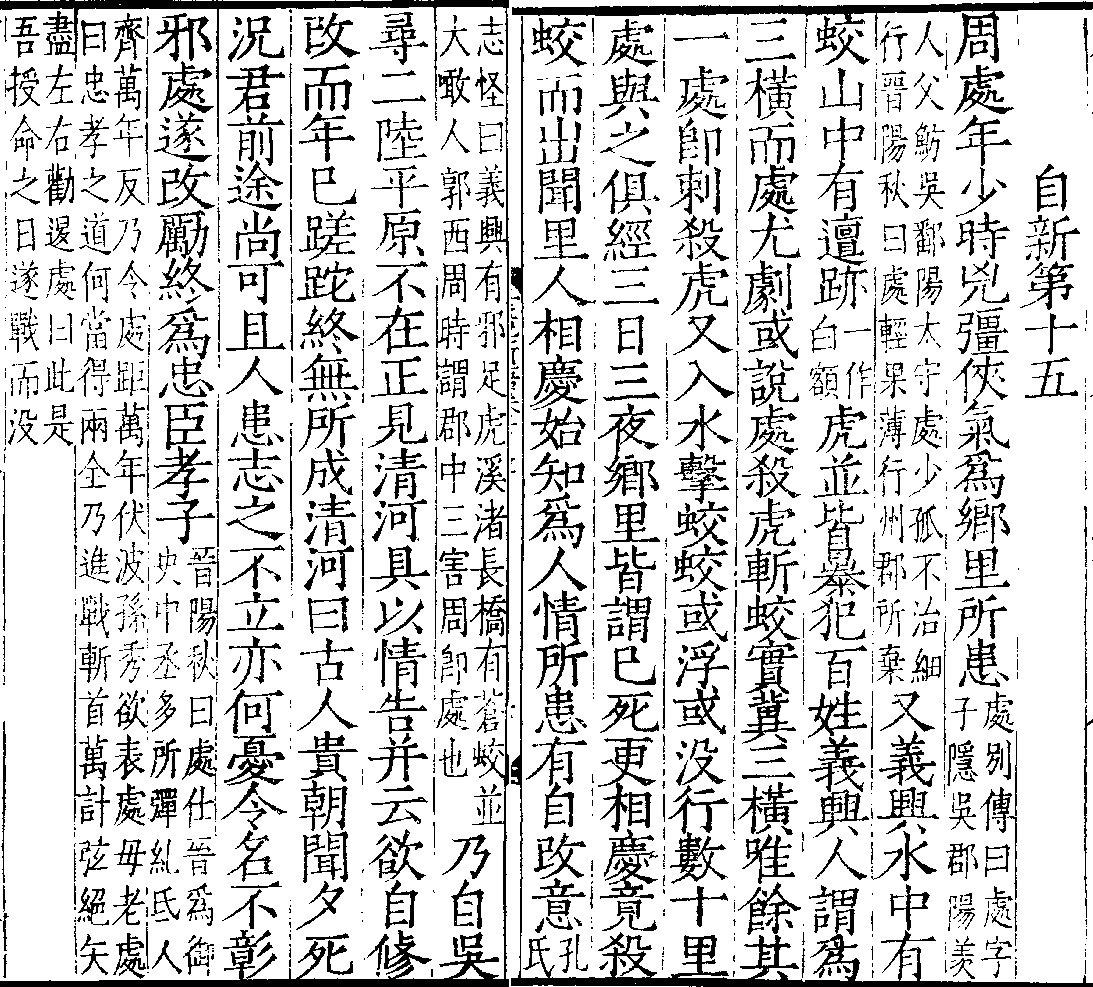 自新第十五
周處年少時兇彊俠氣爲鄉里所患處別傳曰處字子隱吳郡陽羨
人父魴吳鄱陽太守處少孤不治細行晉陽秋曰處輕果薄行州郡所棄又義興水中有
蛟山中有邅跡一作白額虎並皆暴犯百姓義興人謂爲
三橫而處尤劇或說處殺虎斬蛟實冀三橫唯餘其
一處卽刺殺虎又入水擊蛟蛟或浮或没行數十里
處與之俱經三日三夜鄉里皆謂已死更相慶竟殺
蛟而出聞里人相慶始知爲人情所患有自改意孔氏
志怪曰義興有邪足虎溪渚長橋有蒼蛟並大噉人郭西周時謂郡中三害周卽處也乃自吳
尋二陸平原不在正見清河具以情告并云欲自修
改而年已蹉跎終無所成清河曰古人貴朝聞夕死
況君前途尚可且人患志之不立亦何憂令名不彰
邪處遂改勵終爲忠臣孝子晉陽秋曰處仕晉爲御史中丞多所彈糾氐人
齊萬年反乃令處距萬年伏波孫秀欲表處母老處曰忠孝之道何當得兩全乃進戰斬首萬計弦絕矢
盡左右勸退處曰此是吾授命之日遂戰而没